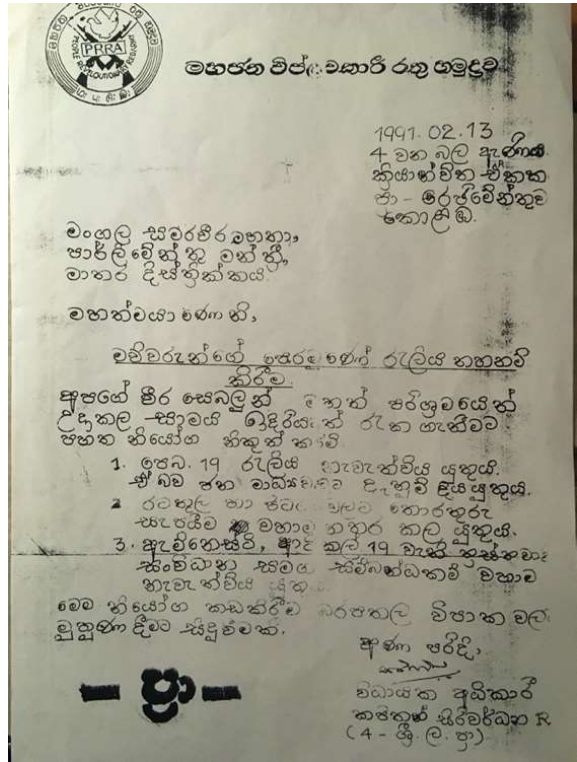 PRRA
මහජන විප්ලවකාරී රතු හමුදාව
1991.02.13
4 වන බල ඇණිය
ක්‍රියාන්විත ඒකක
ප්‍රා - රෙජිමේන්තුව
කොළඹ.
මංගල සමරවීර මහතා,
පාර්ලිමේන්තු මන්ත්‍රී,
මාතර දිස්ත්‍රික්කය.
මහත්මයාණෙනි,
මව්වරුන්ගේ පෙරමුණේ රැලිය තහනම්
කිරීම.
අපගේ වීර සෙබලුන් මහත් පරිශ්‍රමයෙන්
උදාකල සාමය ඉදිරියටත් රැක ගැනීමට
පහත නියෝග නිකුත් කරමි
1. පෙබ. 19 රැලිය නැවැත්විය යුතුය.
ඒ බව ජන මාධ්‍යවලට දැනුම් දිය යුතුය.
2. රටතුල හා පිටට තොරතුරු
සැපයීම වහාම නතර කල යුතුය.
3. ඇම්නෙස්ටි, ආටිකල් 19 වැනි ත්‍රස්තවාදී
සංවිධාන සමග සම්බන්ධකම් වහාම
නැවැත්විය යුතුය
මෙම නියෝග කඩකිරීම බරපතල විපාක වල
මුහුණ දීමට සිදුවීමකි.
අණ පරිදි,
විධායක අධිකාරී
කපිතන් සිරිවර්ධන R
(4 - ශ්‍රී. ල. ප්‍රා)
- ප්‍රා -